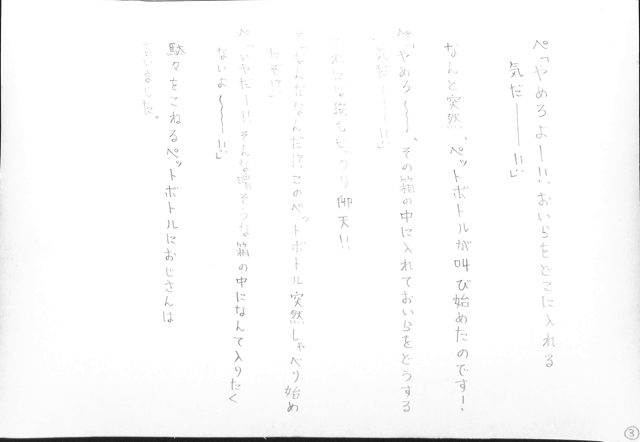 ペ「やめろよー!!おいらをどこに入れる
気だー!!」
なんと突然、ペットボトルが叫び始めたのです!
ペ「やめろ〜〜、その箱の中に入れておいらをどうする
気だー!!」
ビックリ仰天!!
「なんだなんだ!?このペットボトル突然しゃべり始め
たぞ!?」
ペ「いやだー!!そんな壊そうな箱の中になんて入りたく
ないよ〜〜!!」
駄々をこねるペットボトルにおじさんは
言いました。
③